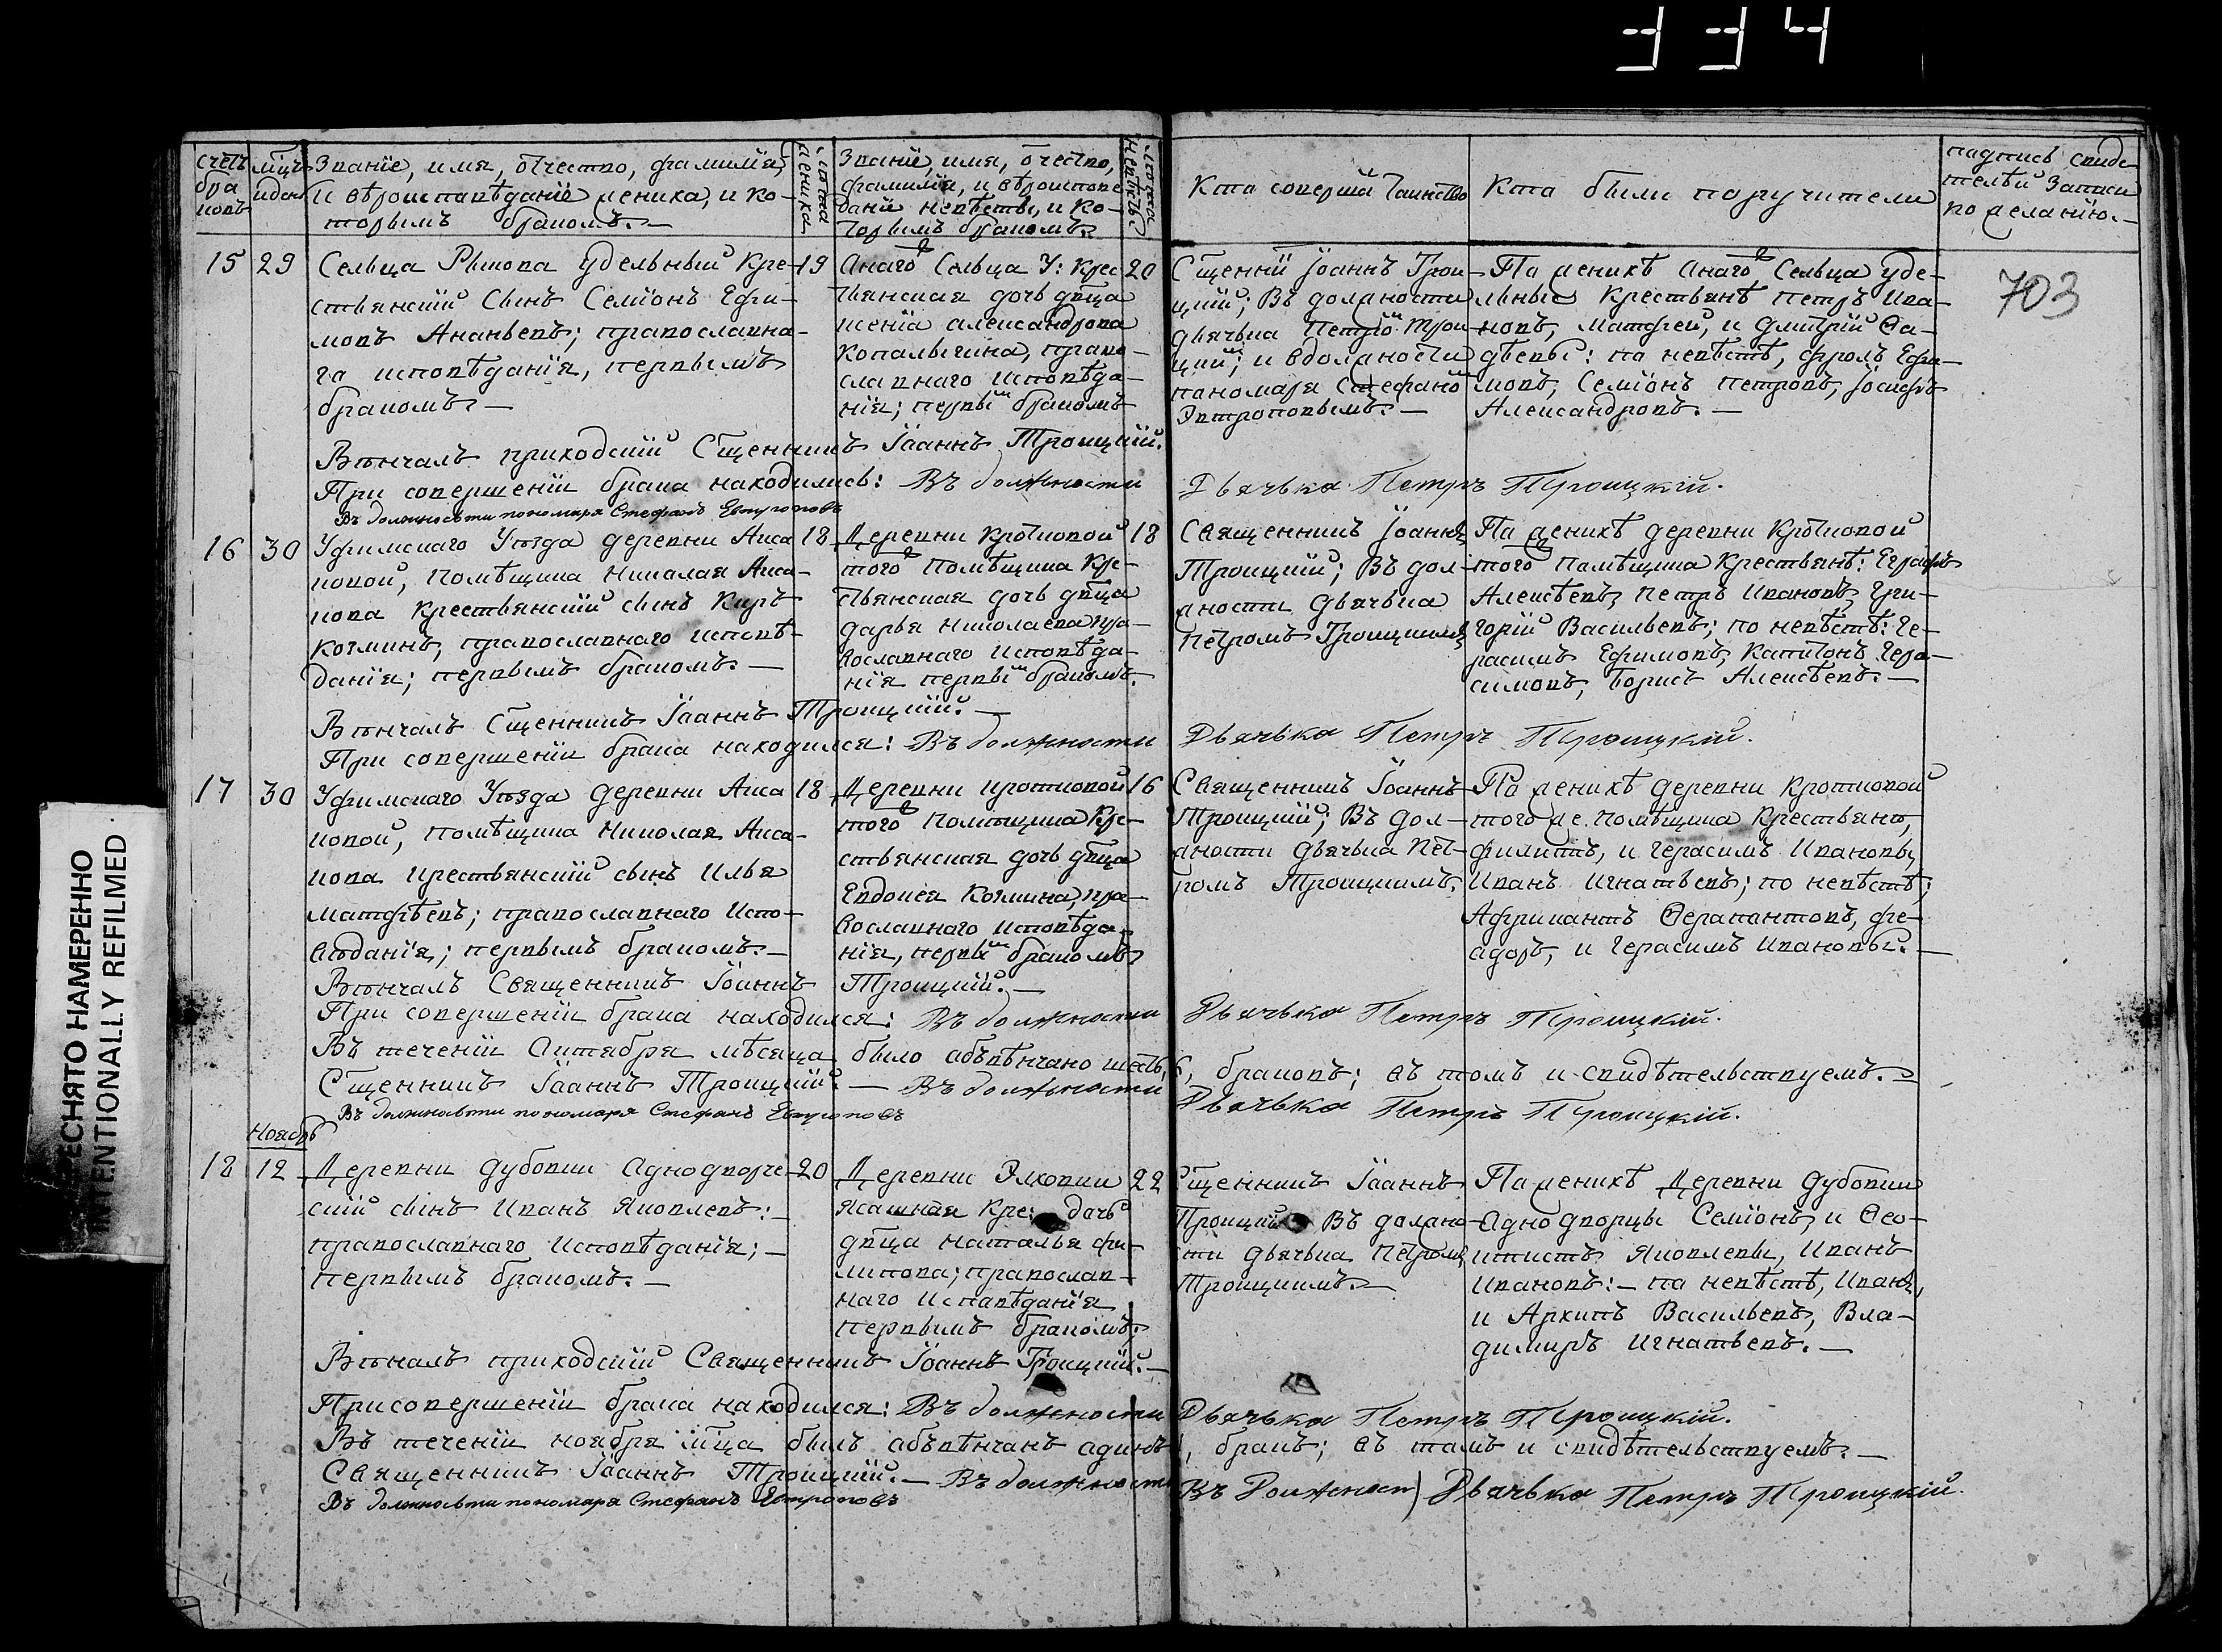 334
счетъ бра ковъ
мцъ и день
Званїе, имя, отчество, фамилїя,
и вѣроисповѣданїе жениха, и ко-
торымъ бракомъ.—
лѣта жениха
Званїе, имя, отчество,
фамилїя, и вѣроисповѣ
данїе невѣсты, и ко-
торымъ бракомъ.
лѣта невѣсты
Кто соверша Таинство
Кто были поручители
подпись свиде-
телей записи
по желанїю.—
703
15
29
Сельца Рыкова Удельный Кре-
ствянскїй Сынъ Семїонъ Ефи-
мовъ Ананьевъ; православна-
го исповѣданїя, первымъ
бракомъ—
19
Анаго Сельца У: Крес
тьянская дочь двца
Ксенїа александрова
Копалыгина, право-
славнаго исповѣда-
нїя; первы бракомъ
20
Сщенни Їоаннъ Трои-
цкїй; Въ должности
дьячька Петро Трои-
цкїй; и вдолжности
пономаря Стефано
Евтроповымъ.—
Па женихѣ анаго Сельца уде-
льные Крестьянѣ петръ Ива-
новъ, матфей, и дмитрїй Фа-
дѣевы: па невѣстѣ, фролъ Ефи-
мовъ, Семїонъ петровъ, Їосифъ
Александровъ.—
Вѣнчалъ приходскїй Сщенникъ Їоаннъ Троицкїй.
При совершенїи брака находились: Въ должности Дьячька Петръ Троицкїй.
Въ должности пономаря Стефанъ Евтроповъ
16
30
Уфимскаго Уѣзда деревни Акса
ковой, Помѣщика Николая Акса-
кова Крестьянскїй сынъ Киръ
Козминъ, православнаго исповѣ-
данїя; первымъ бракомъ.—
18
Деревни Кротковой
того Помѣщика Кре-
стьянская дочь двца
дарья николаева пра-
вославнаго исповѣда-
нїя первы бракомъ.
18
Священникъ Їоаннъ
Троицкїй; Въ дол-
жности дьячька
Петромъ Троицкимъ
Па женихѣ деревни Кротковой
того памѣщика Крестьянѣ: Евграфъ
Алексѣевъ, петръ ивановъ, Гри-
горїй Васильевъ; по невѣстѣ: Ге-
расимъ Ефимовъ, Капитонъ Гера-
симовъ, Борисъ Алексѣевъ.—
Вѣнчалъ Сщенникъ Їоаннъ Троицкїй.—
При совершенїи брака находился: Въ должности Дьячька Петръ Троицкїй.
17
30
Уфимскаго Уѣзда деревни Акса
ковой, помѣщика Николая Акса-
кова крестьянскїй сынъ Илья
матфѣевъ; православнаго Испо-
вѣданїя; первымъ бракомъ.—
18
Деревни кротковой
того Помѣщика Кре-
стьянская дочь двца
Евдокея Козмина, пра-
вославнаго исповѣда-
нїя, первы бракомъ
16
Священникъ Їоаннъ
Троицкїй; Въ дол-
жности дьячька Пет-
ромъ Троицкимъ.
Па женихѣ деревни Кротковой
того же помѣщика Крестьянѣ,
филипъ, и герасимъ Ивановы,
Иванъ Игнатьевъ; по невѣстѣ;
Африкантъ Ѳерапантовъ, фе-
адоръ, и Герасимъ ивановы.—
Вѣнчалъ Священникъ Їоаннъ Троицкїй.—
При совершенїи брака находился: Въ должности Дьячька Петръ Троицкїй.
Въ теченїи Октября мѣсяца было абъвѣнчано шесть, 6, браковъ; въ томъ и свидѣтельствуемъ.—
Сщенникъ Їоаннъ Троицкїй.— Въ должности Дьячька Петръ Троицкїй.
Въ должности пономаря Стефанъ Евтроповъ
Ноябрь
18
12
Деревни дубовки Аднодворче-
скїй сынъ Иванъ Яковлевъ:—
православнаго исповѣданїя;—
первымъ бракомъ.—
20
Деревни Елховки
Ясашная Кре: дочь
двца наталья фи-
липова; православ-
наго исповѣданїя
первымъ бракомъ.
22
Сщенникъ Їоаннъ
Троицкїй Въ должно-
сти дьячька Петромъ
Троицкимъ.—
Па женихѣ Деревни дубовки
Аднодворцы Семїонъ, и Ѳео-
ктистъ Яковлевы, Иванъ
Ивановъ:— па невѣстѣ, Иванъ,
и Архипъ Васильевъ, Вла-
димиръ Игнатьевъ.—
Вѣналъ приходскїй Священникъ Їоаннъ Троицкїй.—
При совершенїи брака находился: Въ должности Дьячька Петръ Троицкїй.
Въ теченїи ноября мца былъ абъвѣнчанъ адинъ 1, бракъ; въ томъ и свидѣтельствуемъ.—
Священникъ Їоаннъ Троицкїй.— Въ должности Въ Должност) Дьячька Петръ Троицкїй.
Въ должности пономаря Стефанъ Евтроповъ
РЕСНЯТО НАМЕРЕННО
INTENTIONALLY REFILMED